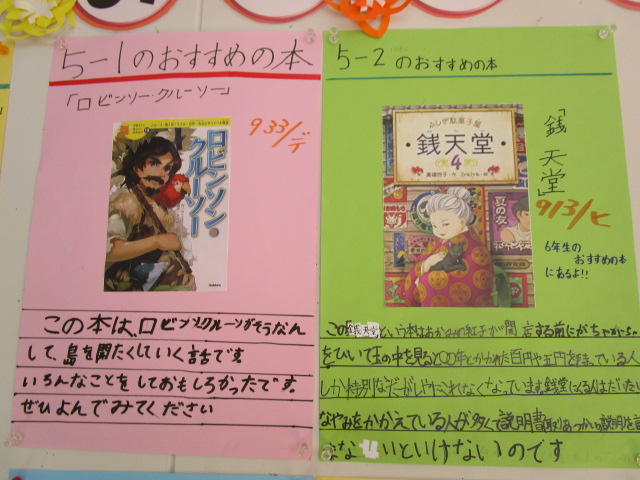 5-1のおすすめの本
「ロビンソー・クルーソー」
933/デ
ロビンソン・
クルーソー
この本は、ロビンソンクルーソーがそうなん
して、島を開たくしていく話です
いろんなことをしておもしろかったです。
ぜひよんでみてください
5-2 のおすすめの本
ふしぎ駄菓子屋
銭天堂
4
夏の友
「銭天堂」
913/ヒ
6年生の
おすすめの本
にあるよ!!
この「銭天堂」という本はおかみの紅子が開店する前にがちゃがちゃ
をひいて玉の中を見ると〇〇年とかかれた百円や五円を持っている人
しか
なやみをかかえている人が多くて説明書
いといけないのです